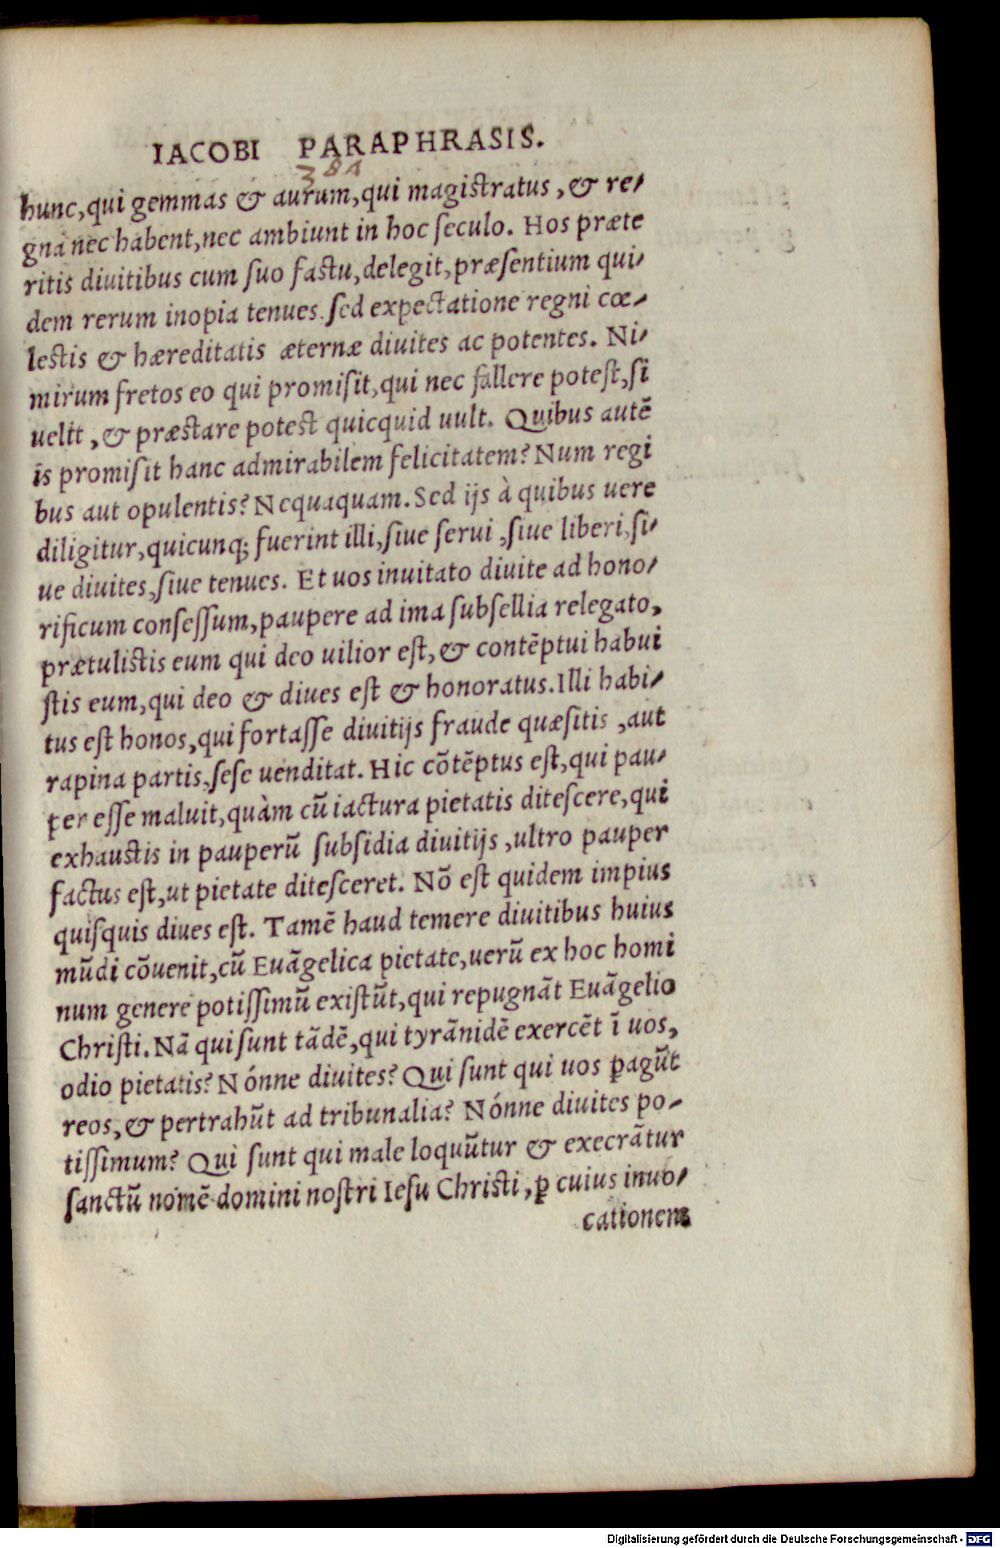 IACOBI PARAPHRASIS.
381
hunc, qui gemmas & aurum, qui magistratus, & re-
gna nec habent, nec ambiunt in hoc seculo. Hos præte
ritis diuitibus cum suo fastu, delegit, præsentium qui-
dem rerum inopia tenues. sed expectatione regni cœ-
lestis & hæreditatis æternæ diuites ac potentes. Ni-
mirum fretos eo qui promisit, qui nec fallere potest, si
uelit, & præstare potest quicquid uult. Quibus autē
is promisit hanc admirabilem felicitatem? Num regi
bus aut opulentis? Nequaquam. Sed ijs à quibus uere
diligitur, quicunq; fuerint illi, siue serui, siue liberi, si-
ue diuites, siue tenues. Et uos inuitato diuite ad hono-
rificum consessum, paupere ad ima subsellia relegato,
prætulistis eum qui deo uilior est, & contēptui habui
stis eum, qui deo & diues est & honoratus. Illi habi-
tus est honos, qui fortasse diuitijs fraude quæsitis, aut
rapina partis, sese uenditat. Hic cōtēptus est, qui pau-
per esse maluit, quàm cū iactura pietatis ditescere, qui
exhaustis in pauperū subsidia diuitijs, ultro pauper
factus est, ut pietate ditesceret. Nō est quidem impius
quisquis diues est. Tamē haud temere diuitibus huius
mūdi cōuenit, cū Euāgelica pietate, uerū ex hoc homi
num genere potissimū existūt, qui repugnāt Euāgelio
Christi. Nā qui sunt tādē, qui tyrānidē exercēt ī uos,
odio pietatis? Nónne diuites? Qui sunt qui uos ꝑagūt
reos, & pertrahūt ad tribunalia? Nónne diuites po-
tissimum? Qui sunt qui male loquūtur & execrātur
sanctū nomē domini nostri Iesu Christi, ꝑ cuius inuo-
cationem
Digitalisierung gefördert durch die Deutsche Forschungsgemeinschaft - DFG